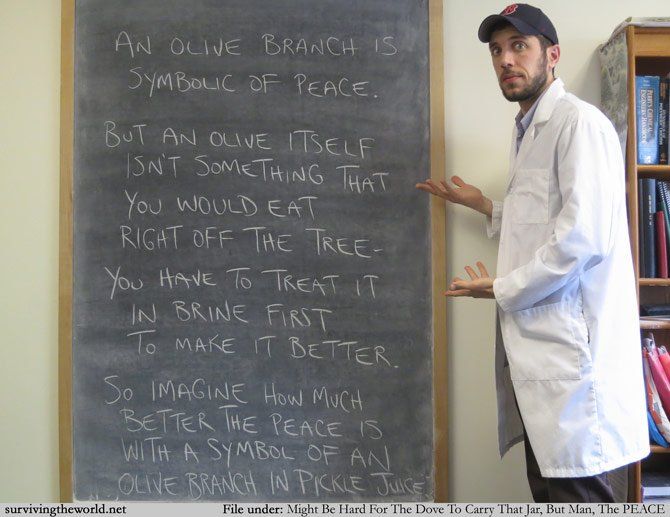 AN OLIVE BRANCH IS
SYMBOLIC OF PEACE.
BUT AN OLIVE ITSELF
ISN'T SOMETHING THAT
YOU WOULD EAT
RIGHT OFF THE TREE-
YOU HAVE TO TREAT IT
IN BRINE FIRST
TO MAKE IT BETTER.
SO IMAGINE HOW MUCH
BETTER THE PEACE IS
WITH A SYMBOL OF AN
OLIVE BRANCH IN PICKLE JUICE
survivingtheworld.net
File under: Might Be Hard For The Dove To Carry That Jar, But Man, The PEACE